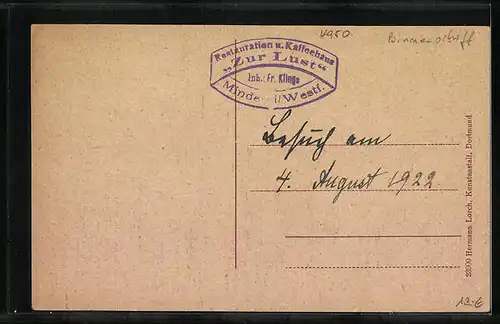 4950
Binnenschiff
Restauration u. Kaffeehaus
„Zur Lust“
Inh. Fr. Klinge
Minden i/Westf.
Besuch am
4. August 1922.
22200 Hermann Lorch, Kunstanstalt, Dortmund
13.-€